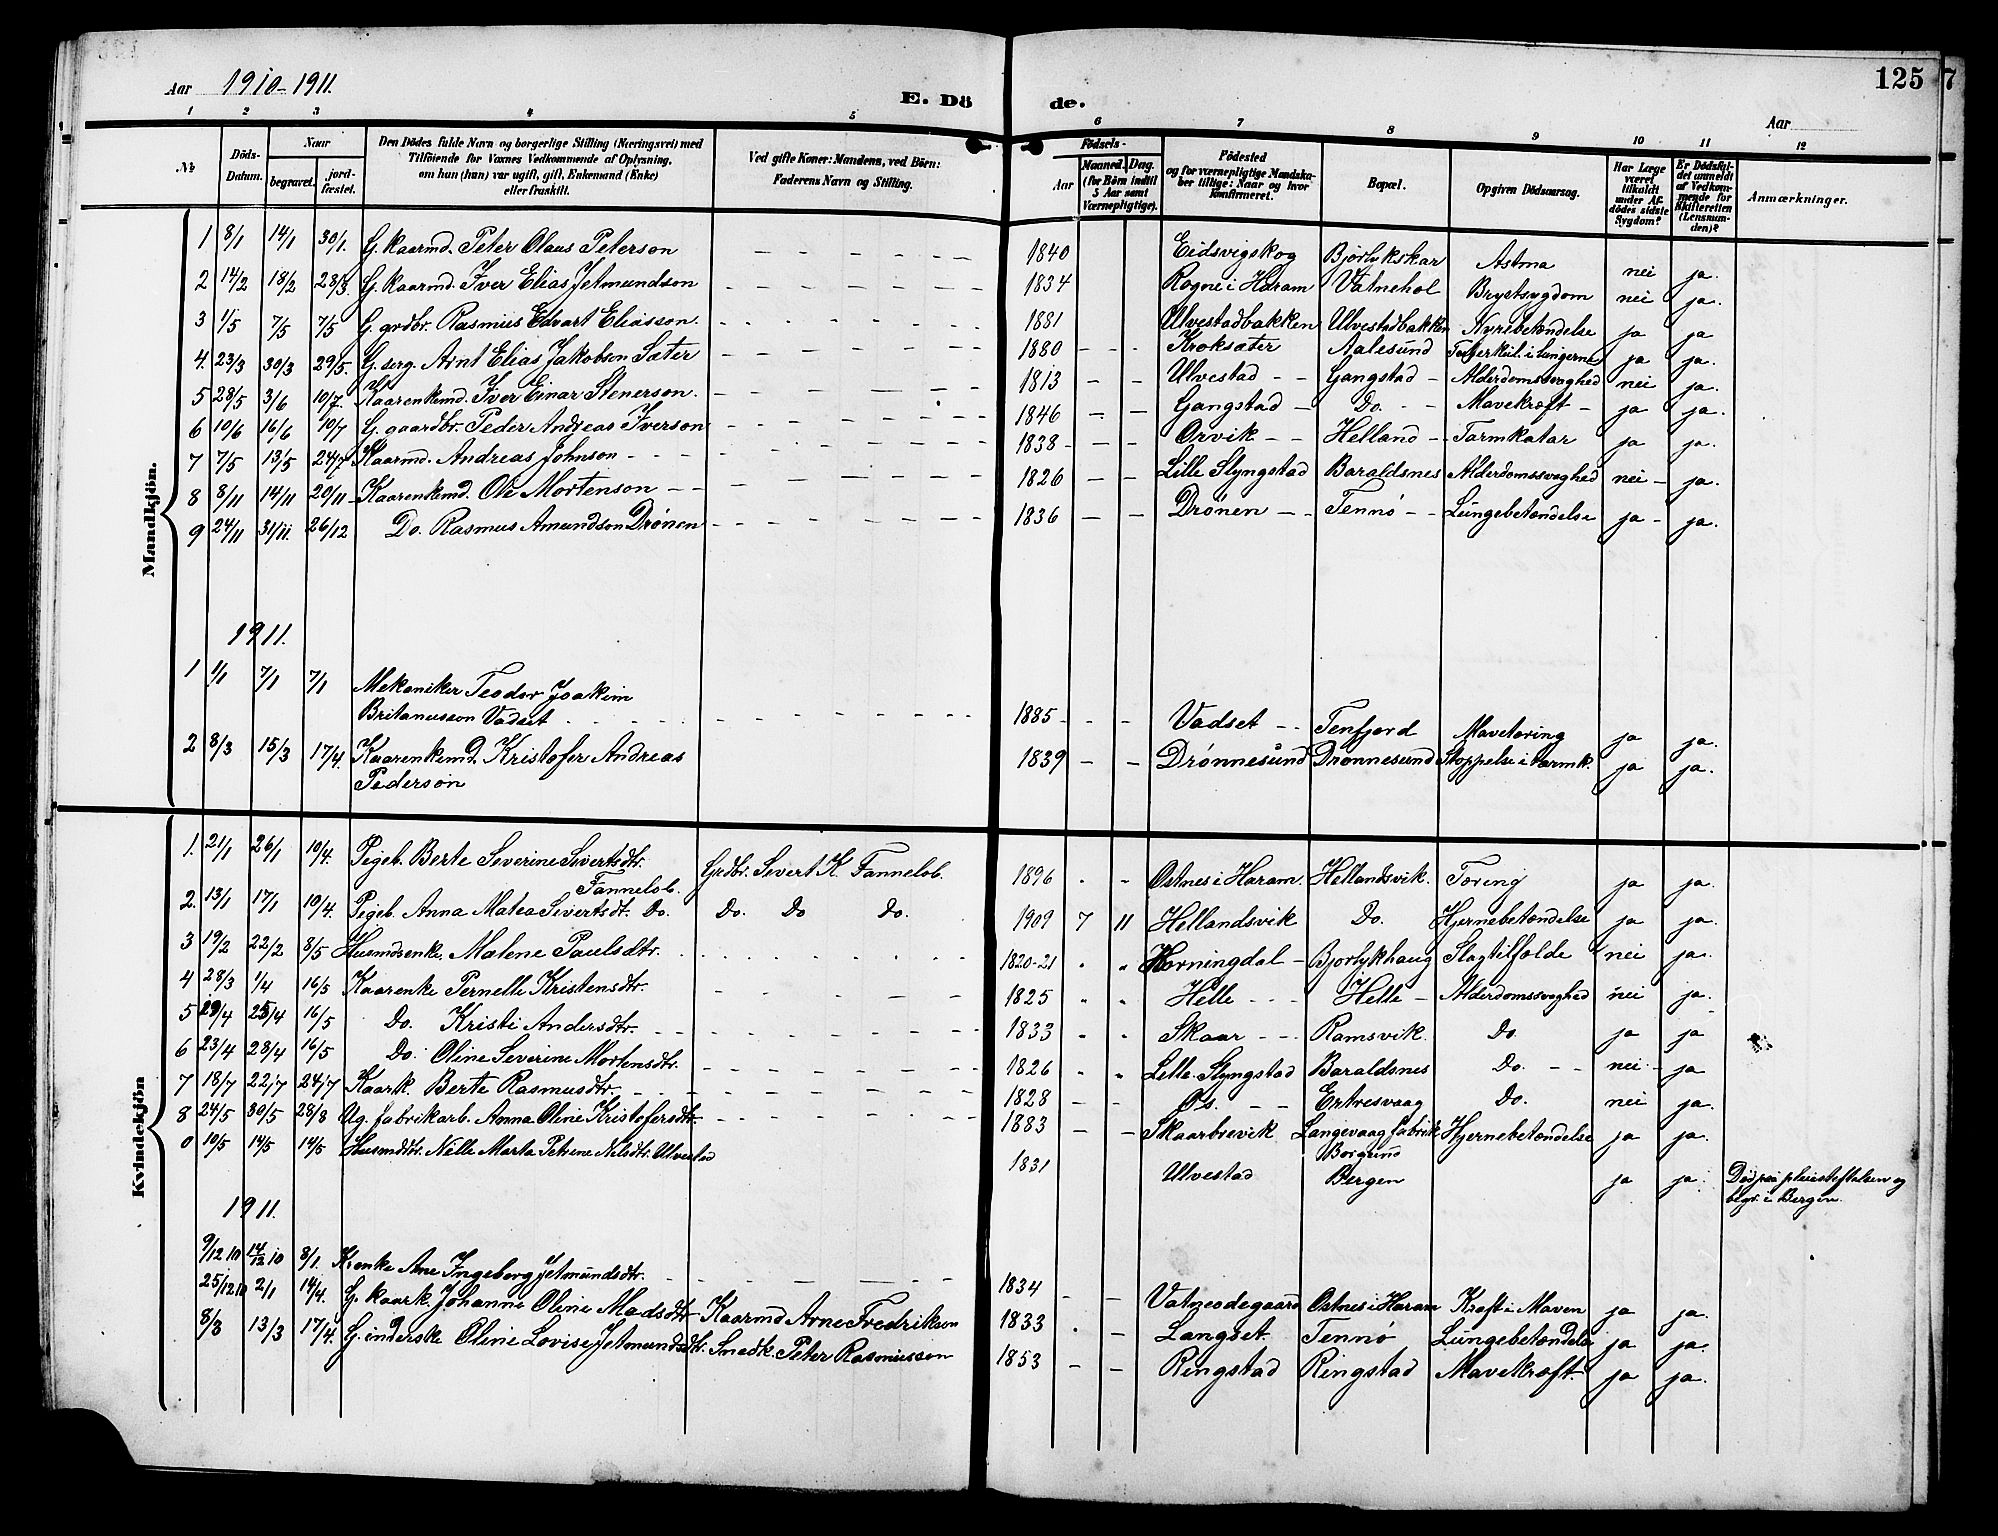 Aar 1910-1911.
E. Dö de.
125
Aar
1 2 3 4 5 6 7 8 9 10 11 12
No Döds-Datum. Naar begravet. jordfæstet. Den Dödes fulde Navn og borgerlige Stilling (Næringsvei) med Tilföiende for Voxnes Vedkommende af Oplysning, om han (hun) var ugift, gift, Enkemand (Enke) eller fraskilt. Ved gifte Koner: Mandens, ved Börn: Faderens Navn og Stilling. Födsels- Aar Maaned. Dag. (for Börn indtil 5 Aar samt Værnepligtige). Födested og for værnepligtige Mandskaber tillige: Naar og hvor konfirmeret. Bopæl. Opgiven Dödsaarsag. Har Læge været tilkaldt under Afdödes sidste Sygdom? Er Dödsfaldet anmeldt af Vedkommende for Skifteretten (Lensmanden)? Anmærkninger.
Mandkjön.
1 8/1 14/1 30/1. G. kaarmd. Peter Olaus Peterson 1840 Eidsvigskog Bjørlykskar Astma nei ja.
2 14/2 18/2 28/3. G. kaarmd. Iver Elias Jetmundson 1834 Rogne i Haram Vatnehol Brystsygdom nei ja.
3 1/5 7/5 7/5 G. grdbr. Rasmus Edvart Eliasson. 1881 Ulvestadbakken Ulvestadbakken Nyrebetændelse ja ja
4. 23/3 30/3 29/5. G. serg. Arnt Elias Jakobson Sæter 1880 Kroksæter Aalesund Tuberkul. i Lungerne ja ja.
5 28/5 3/6 10/7. Kaarenkemd. Iver Einar Stenerson. 1813 Ulvestad Gangstad Alderdomssvaghed nei ja.
6 10/6 16/6 10/7 G. gaardbr. Peder Andreas Iverson 1846 Gangstad Do. Mavekræft ja ja.
7 7/5 13/5 24/7 Kaarmd. Andreas Johnson 1838 Orvik Helland Tarmkatar ja ja.
8 8/11 14/11 20/11 Kaarenkemd. Ole Mortenson 1826 Lille Slyngstad Baraldsnes Alderdomssvaghed nei ja.
9 24/11 31/11. 26/12 Do. Rasmus Amundson Drønen 1836 Drønen Tennø Lungebetændelse ja ja.
1911.
1 1/1 7/1 7/1 Mekaniker Teodor Joakim
Britanusson Vadset 1885 Vadset Tenfjord Mavetæring ja ja.
2 8/3 15/3 17/4. Kaarenkemd. Kristofer Andreas 1839 Drønnesund Drønnesund Stoppelse i Tarmk. ja ja.
Pederson
Kvindekjön
1. 21/1 26/1 10/4. Pigeb. Berte Severine Sivertsdtr. Grdbr. Sivert K. Fannelob. 1896 Ostnes i Haram. Hellandsvik. Tæring ja ja.
Fannelob.
2. 13/1 17/1 10/4. Pigeb. Anna Matea Sivertsdt. Do. Do. Do Do. 1909 7 11 Hellandsvik Do. Hjernebetændelse ja ja.
3 19/2 22/2 8/5 Husmdsenke. Malene Paulsdtr. 1820-21 Horningdal Bjorlykhaug Slagtilfælde nei ja.
4 28/3 1/4 16/5 Kaarenke Pernelle Kristensdtr. 1825 Helle Helle Alderdomssvaghed nei ja.
5 20/4 25/4 16/5 Do. Kristi Andersdtr. 1833 Skaar Ramsvik. Do. ja ja
6 23/4 28/4 16/5 Do. Oline Severine Mortensdtr. 1826 Lille Slyngstad Baraldsnes Do. nei ja
7 18/7 22/7 24/7 Kaark. Berte Rasmusdtr. 1828 Os. Do. nei ja.
8 24/5 30/5 28/8 Ug. fabrikarb. Anna Oline Kristofersdtr. 1883 Skaarbrevik Langevaag fabrik Hjernebetændelse ja ja.
Borgund
0 10/5 14/5 14/5 Husmdtr. Nille Marta Petrine Nilsdtr. Ulvestad 1831 Ulvestad Bergen ja ja. Død paa pleiestiftelsen og
begr. i Bergen.
1911.
9/12 10 14/12 10 8/1. Kenke Ane Ingeborg Jetmundsdtr. 1834 Vatneødegaard Ostnes i Haram Kræft i Maven ja ja.
25/12 10 2/1 14/4. G. kaark. Johanne Oline Madsdtr Kaarmd Arne Fredrikson 1833 Langset. Tennø Lungebetændelse ja ja.
8/3 13/3 17/4. G. inderske Oline Lovise Jetmundsdtr. Snedk. Peter Rasmusson 1853 Ringstad Ringstad Mavekræft. ja ja.